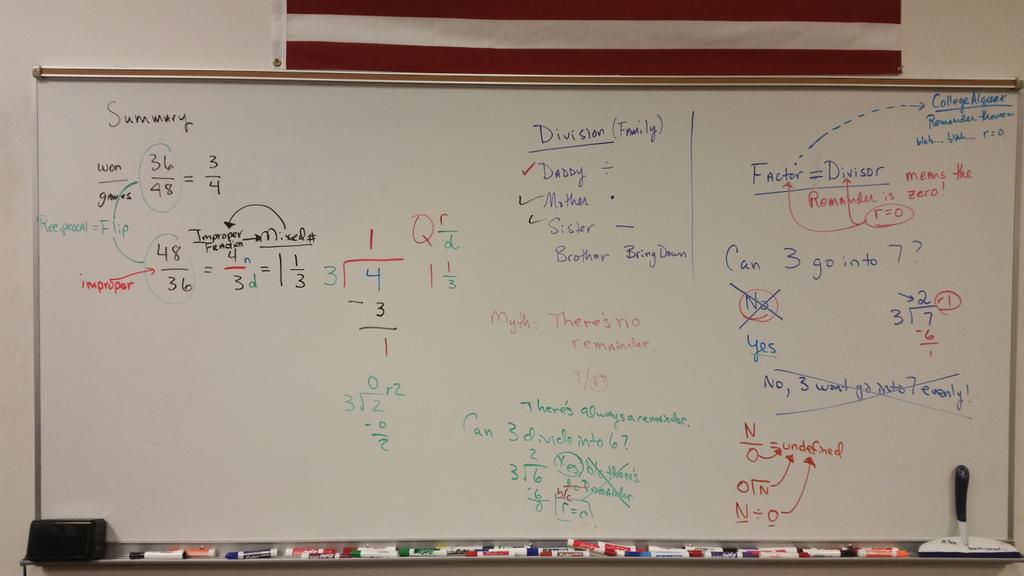 Summary
won
games
36
48
=
3
4
Reciprocal = Flip
48
36
improper
=
Improper
Fraction
4 n
3 d
=
Mixed #
1 1
3
1
3 4
- 3
1
Q r
d
1 1
3
0 r2
3 2
- 0
2
Division (Family)
✓ Daddy ÷
✓ Mother •
✓ Sister —
Brother Bring Down
Myth: There's no
remainder.
T/F
There's always a remainder.
Can 3 divide into 6?
2
3 6
-6
0
Yes b/c there's
no Remainder
b/c
r=0
College Algebra
Remainder theorem
blah... blah... r=0.
Factor = Divisor means the
Remainder is zero!
r=0
Can 3 go into 7?
No
Yes
2 r1
3 7
-6
1
No, 3 wont go into 7 evenly!
N
0
= undefined
0 N
N ÷ 0